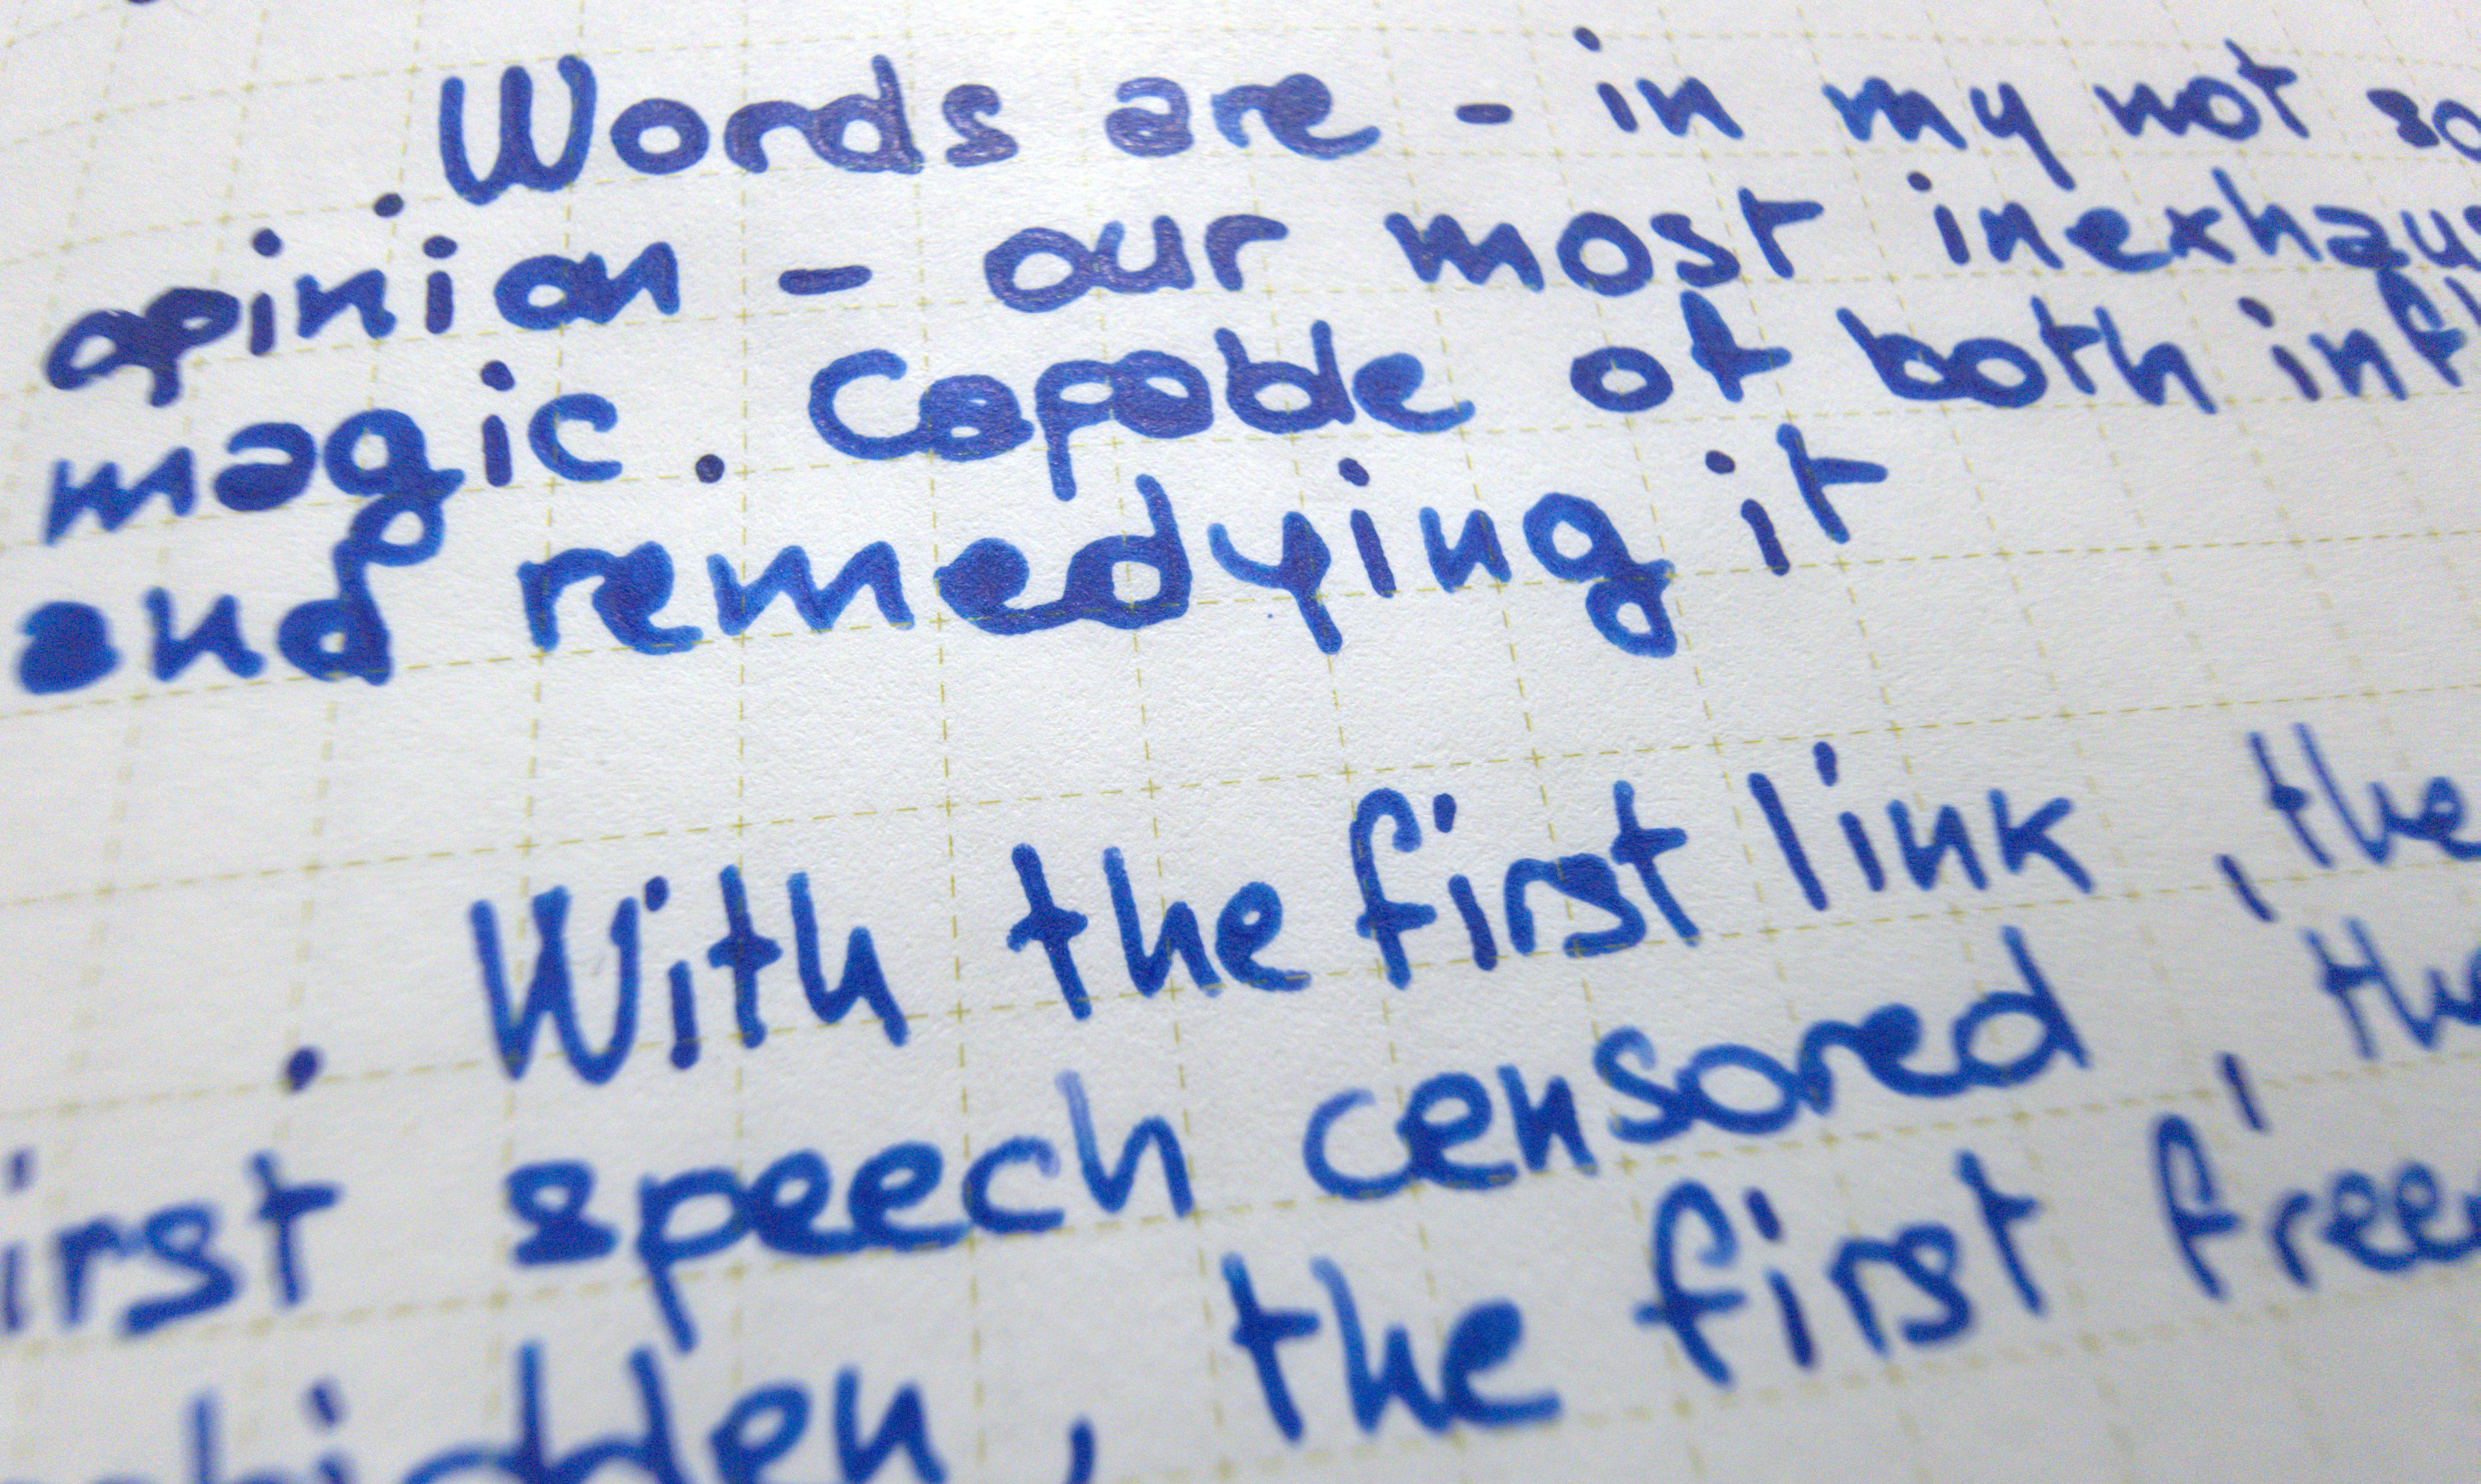 . Words are - in my not so
opinion - our most inexhaus
magic. Capable of both infl
and remedying it
. With the first link, the
irst speech censored, the
bidden, the first free